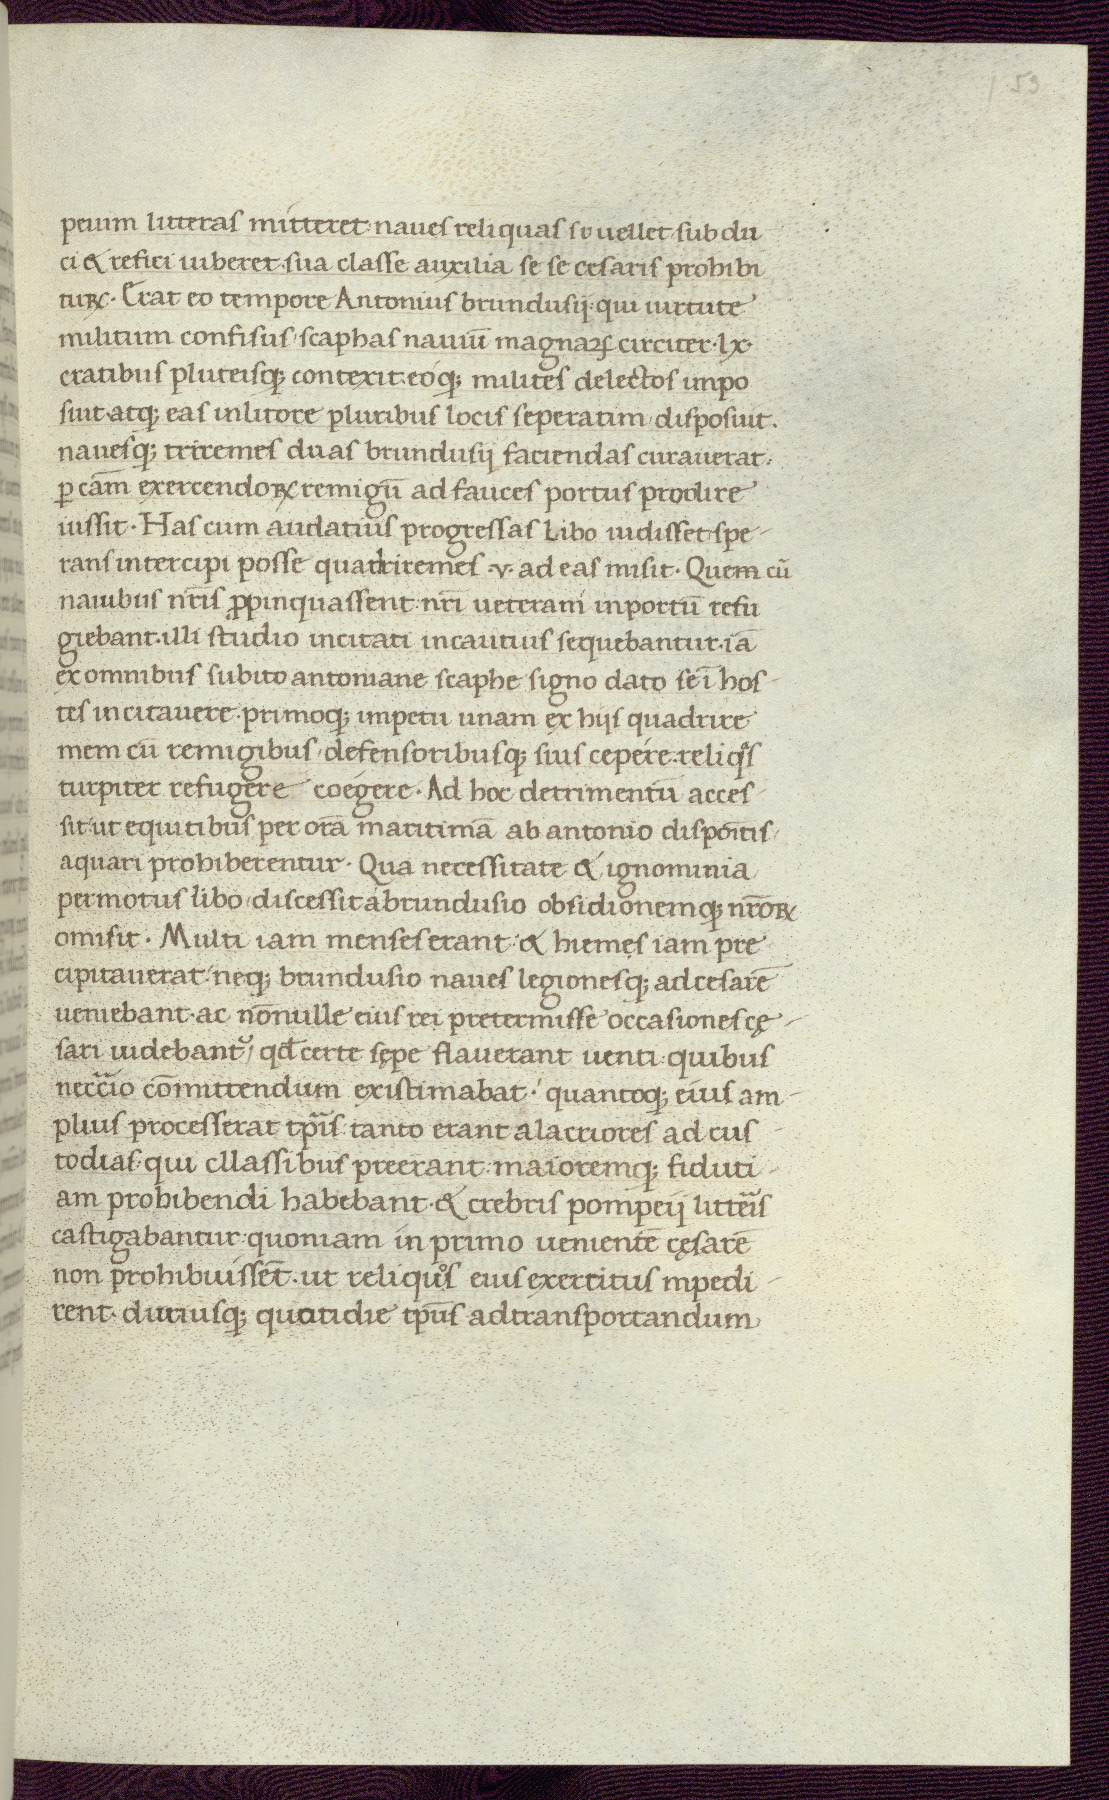 159
peium litteras mitteret· naues reliquas si uellet subdu
ci & refici iuberet· sua classe auxilia se se cesaris prohibi
turꝝ· Erat eo tempore Antonius brundusij· qui uirtute
militum confisus / scaphas nauiū magnaꝝ circiter· lx·
cratibus pluteisq; contexit· eoq; milites delectos impo
suit· atq; eas in litore pluribus locis seperatim / disposuit·
nauesq; triremes duas brundusij faciendas curauerat·
ꝑ cām exercendoꝝ remigū ad fauces portus prodire
iussit· Has cum audatius progressas Libo uidisset / spe-
rans intercipi posse quadriremes ·v· ad eas misit· Quem cū
nauibus nr̄is ꝓpinquassent· nr̄i ueterani in portū refu
giebant· illi studio incitati incautius sequebantur· iā
ex omnibus subito antoniane scaphe signo dato se ī hos-
tes incitauere· primoq; impetu unam ex hijs quadrire
mem cū remigibus / defensoribusq; suis cepere· reliqͦs
turpiter refugere coegere· Ad hoc detrimentū acces-
sit· ut equitibus per orā maritimā ab antonio dispoītis /
aquari prohiberentur· Qua necessitate & ignominia
permotus libo / discessit a brundusio obsidionemq; nr̄oꝝ
omisit· Multi iam menses erant· & hiemes iam pre
cipitauerat· neq; brundusio naues legionesq; ad cesarē
ueniebant· ac nōnulle eius rei pretermisse occasiones cę-
sari uidebant᷑ / qd̄ certe sępe flauerant uenti· quibus
necc̄io cōmittendum existimabat· quantoq; eius am-
plius processerat tꝑis· tanto erant alacriores ad cus-
todias· qui cllassibus preerant· maioremq; fiduti-
am prohibendi habebant· & crebris pompeij litteīs
castigabantur· quoniam in primo uenientē cęsarē
non prohibuissēt· ut reliquͦs eius exercitus inpedi-
rent· dutiusq; quotidie tp̄us ad transportandum